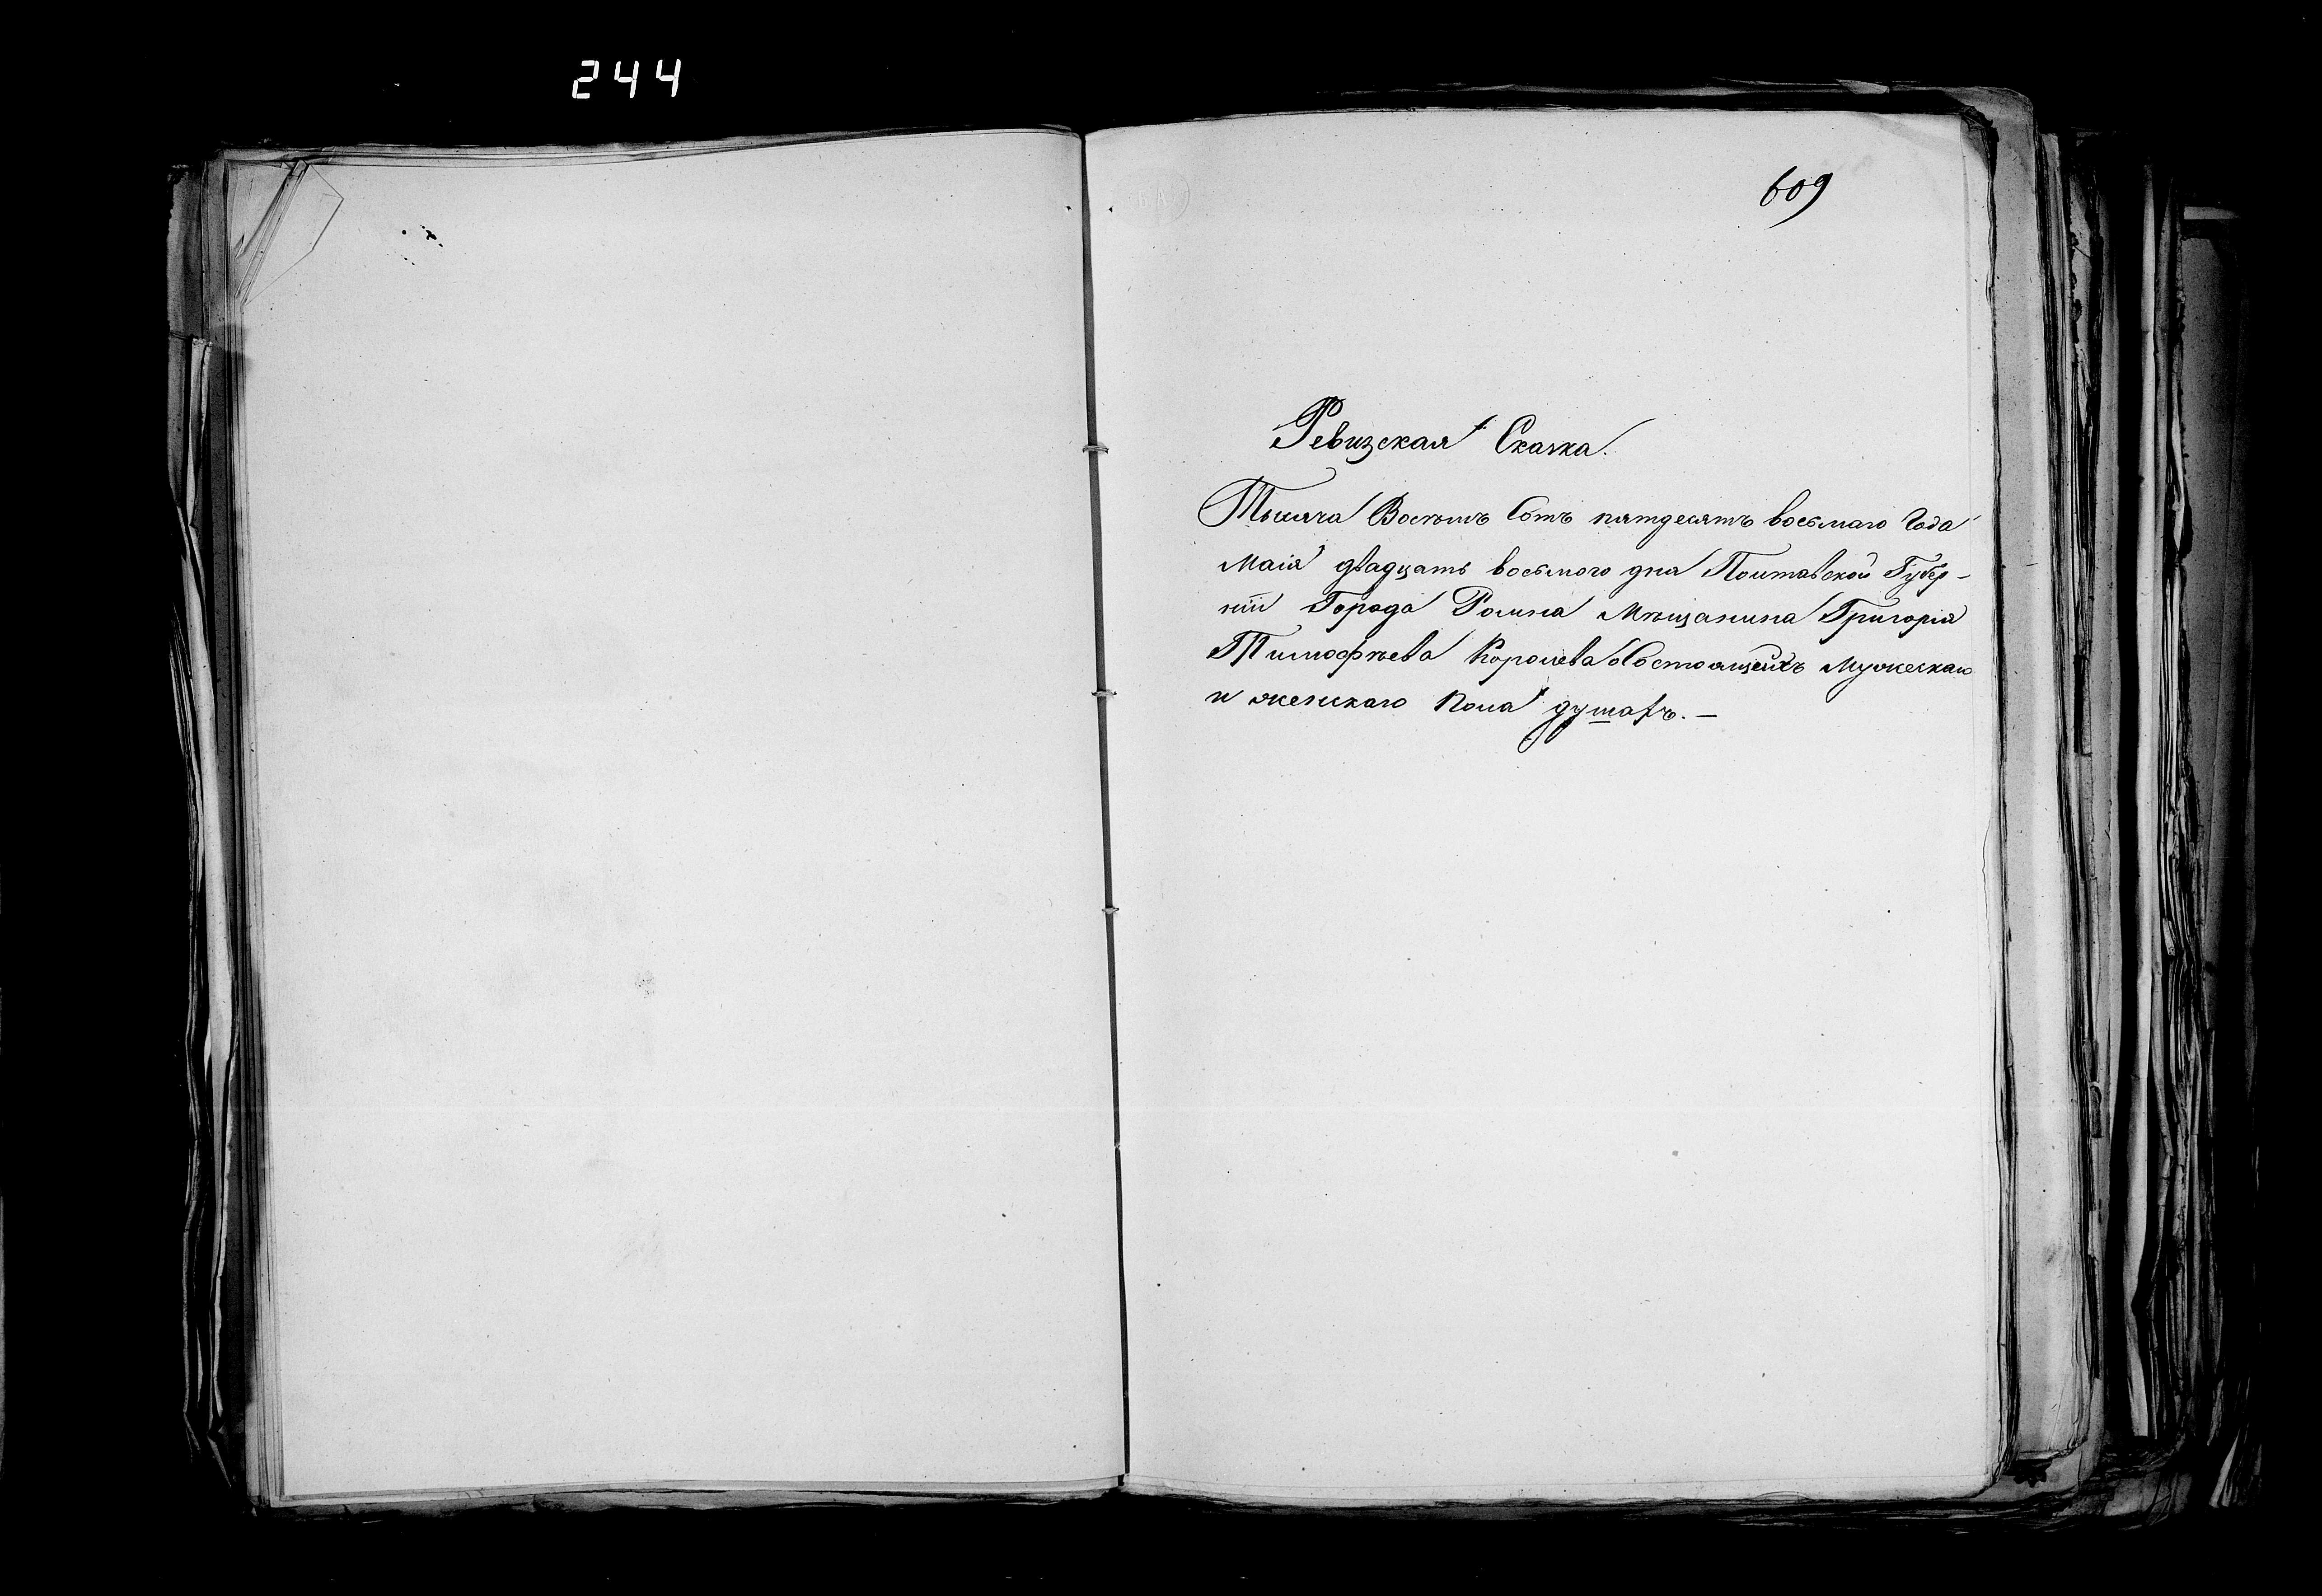 244
609
Ревизская Сказка.
Тысяча Восемъ Сотъ пятдесятъ восьмаго Года
Маія двадцать восьмого дня Полтавской Губер-
ніи Города Ромна Мѣщанина Григорія
Тимофѣева Королева о Состоящихъ Мужескаго
и женскаго Пола душахъ. —